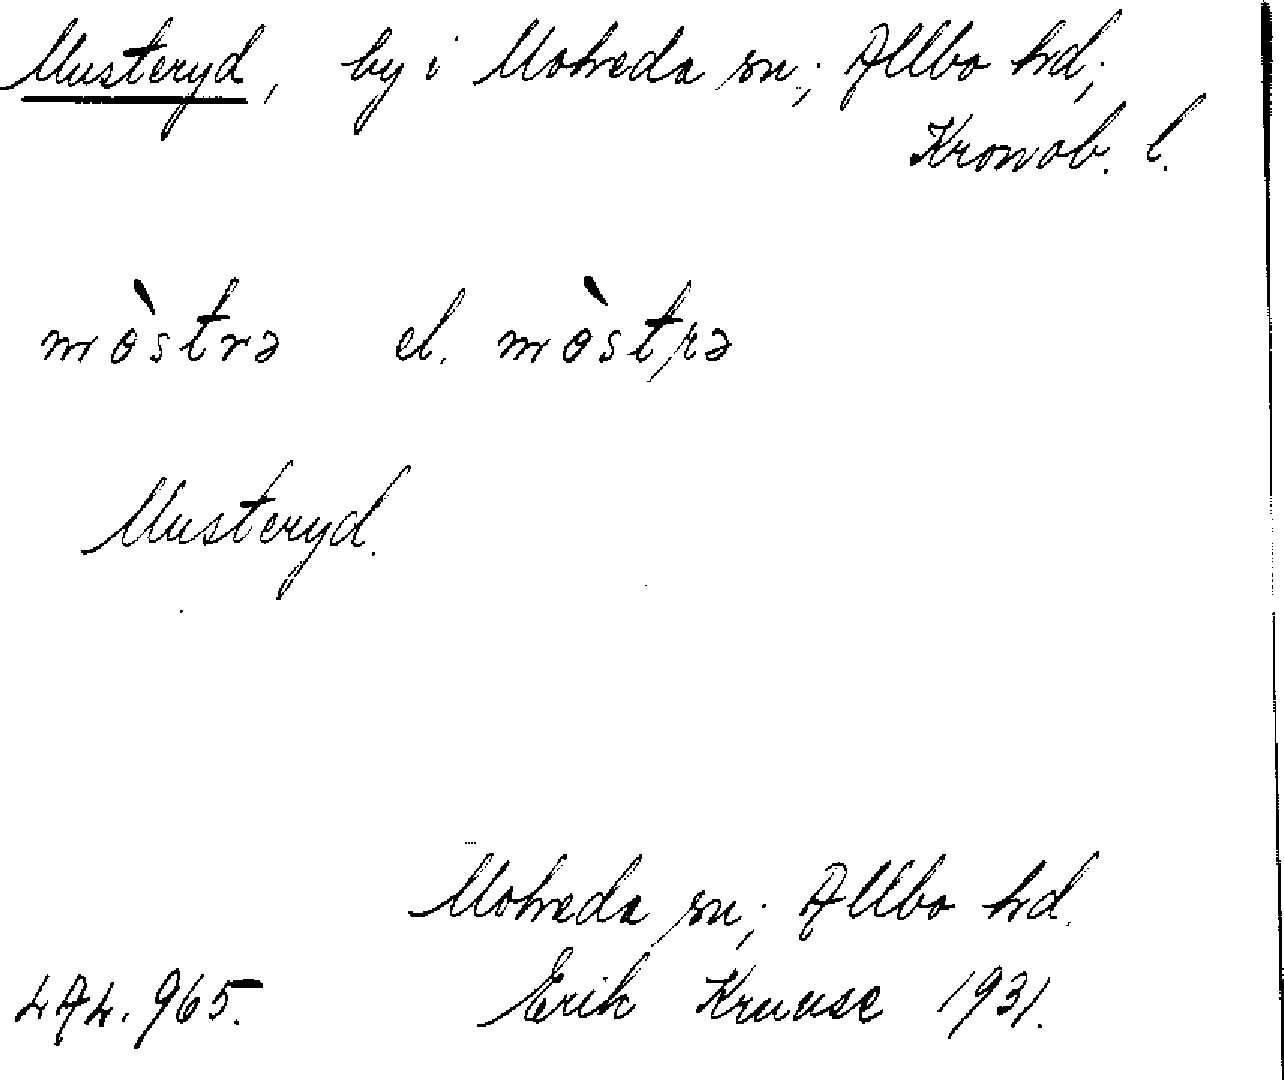 Musteryd, by i Moheda sn; Allbo hd;
Kronob. l.
mòstrə el. mòstrə
Musteryd.
Moheda sn; Allbo hd.
474.965. Erik Kruuse 1931.